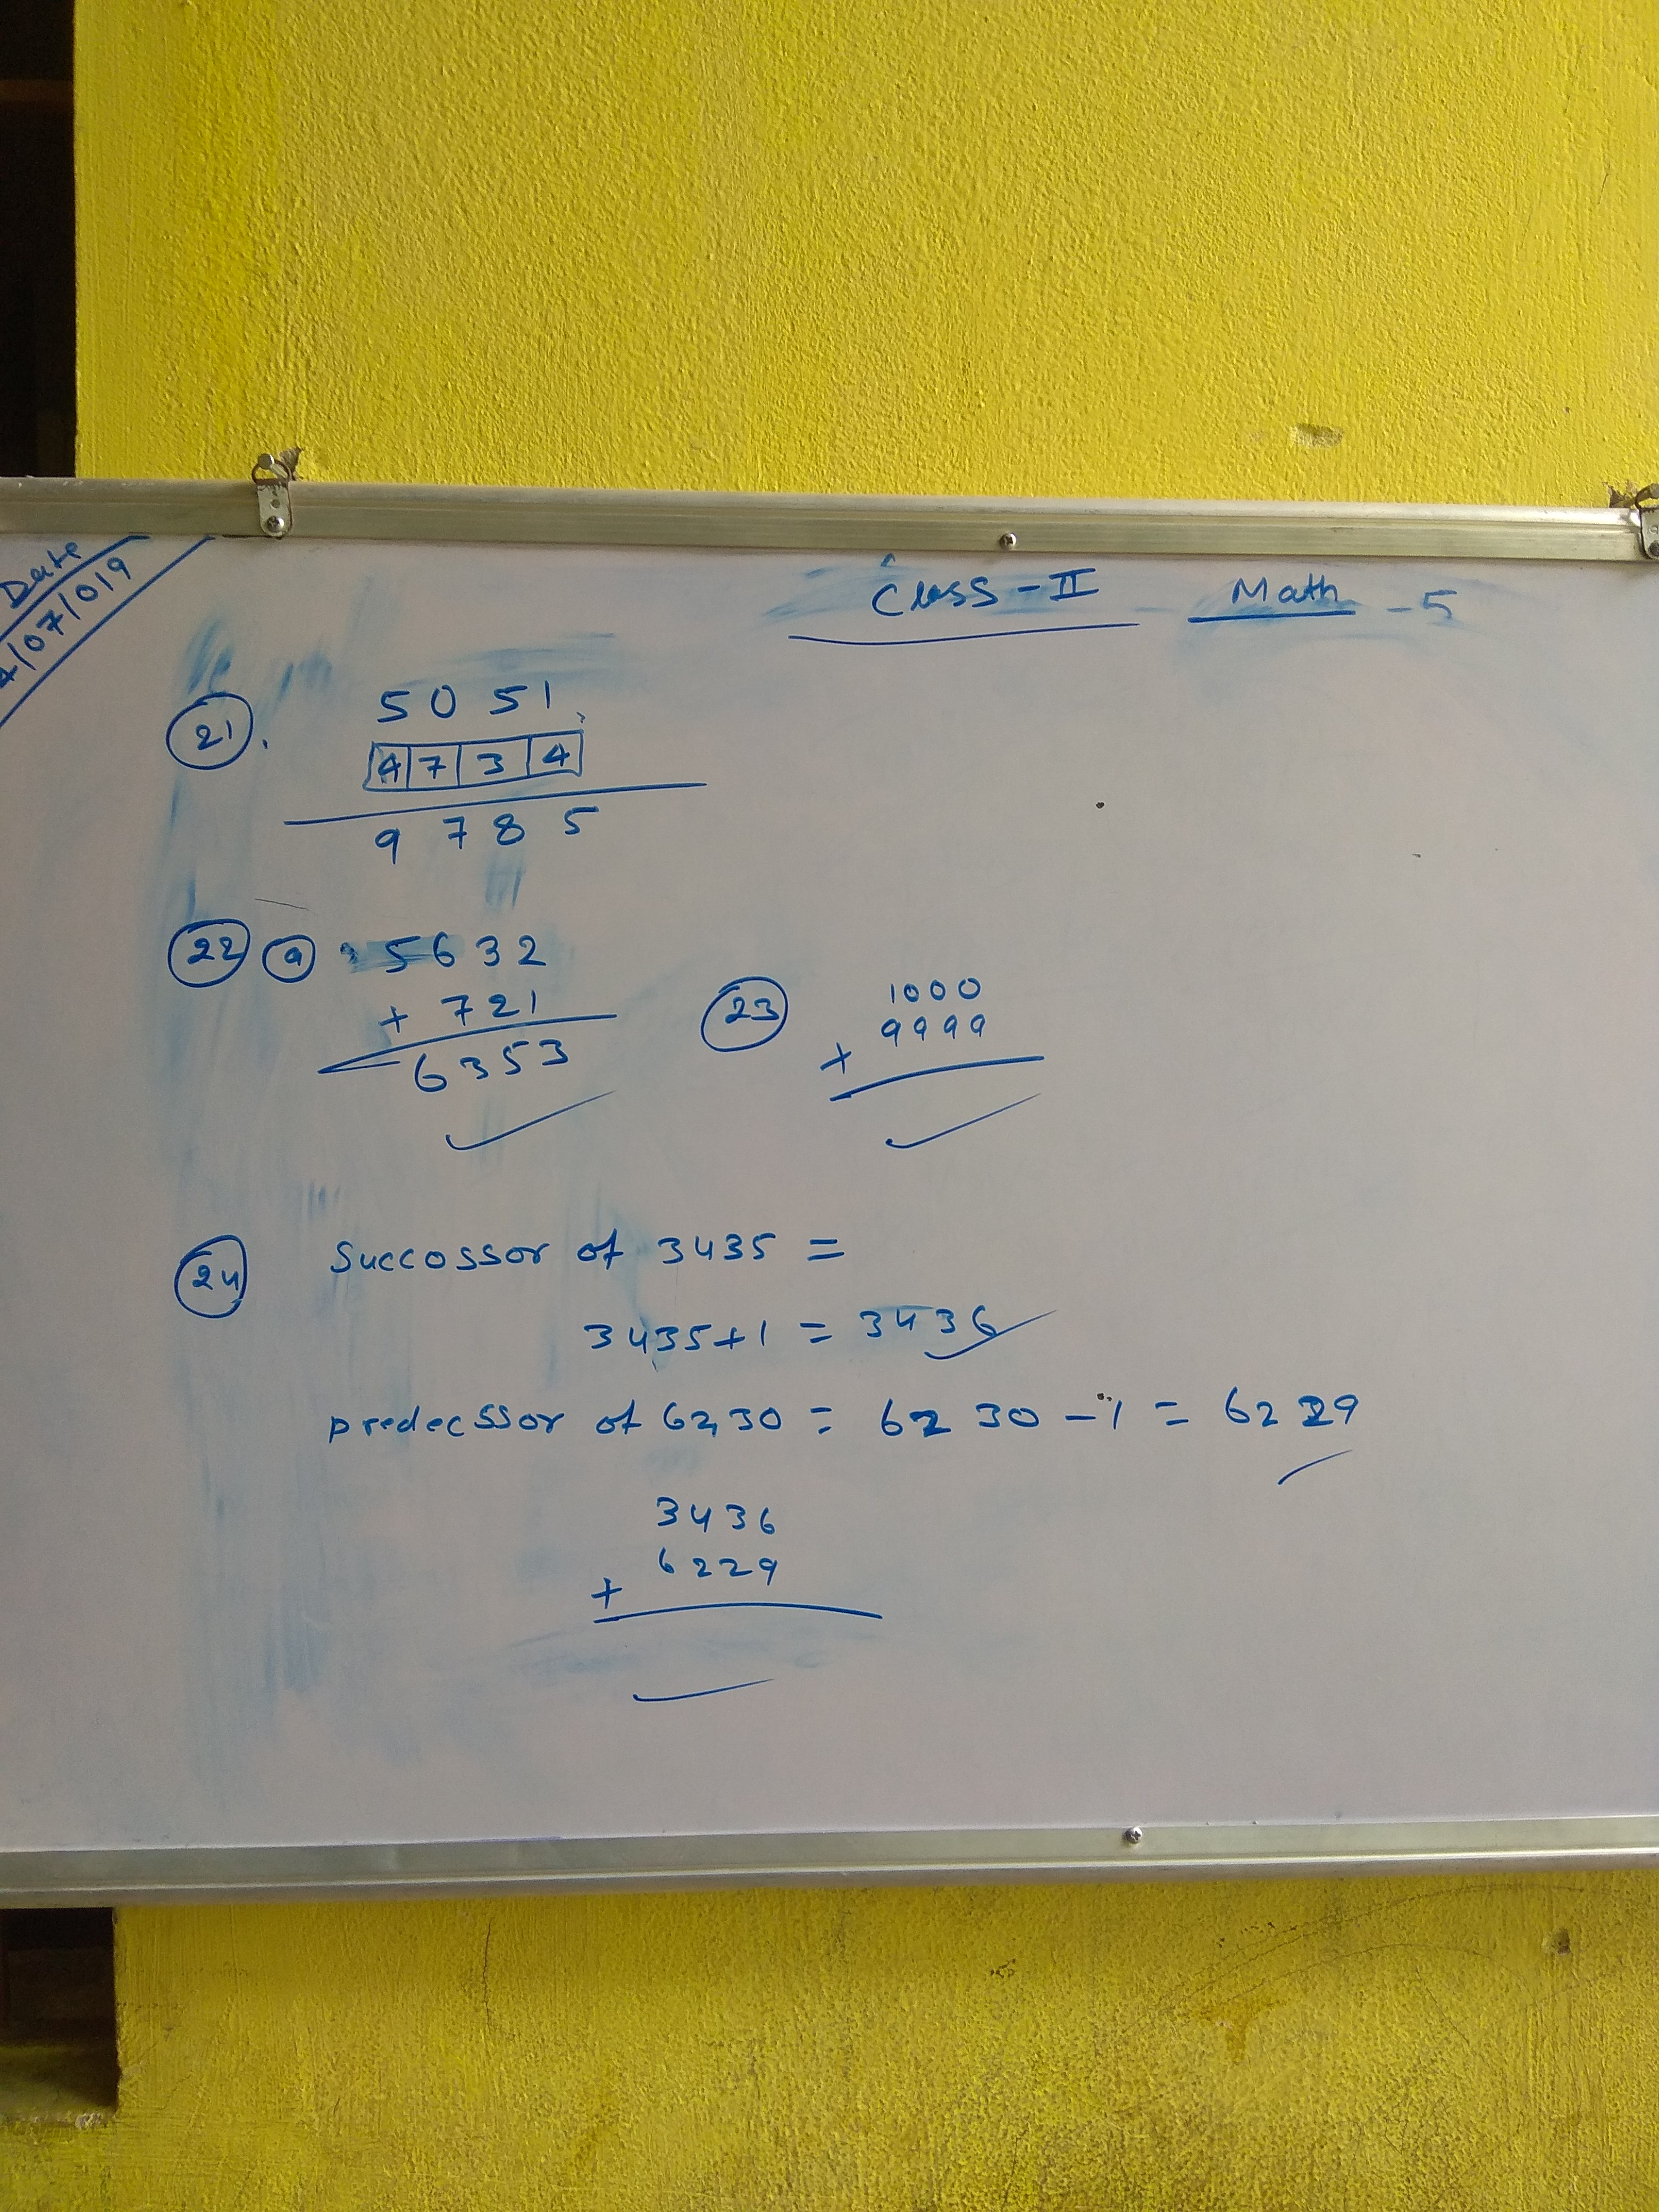 Date
4/07/019
Class - II Math - 5
21.
5051
4734
9785
22 a 5632
+ 721
6353
23
1000
9999
+
24 Successor of 3435 =
3435+1 = 3436
predecssor of 6230 = 6230 - 1 = 6229
3436
6229
+